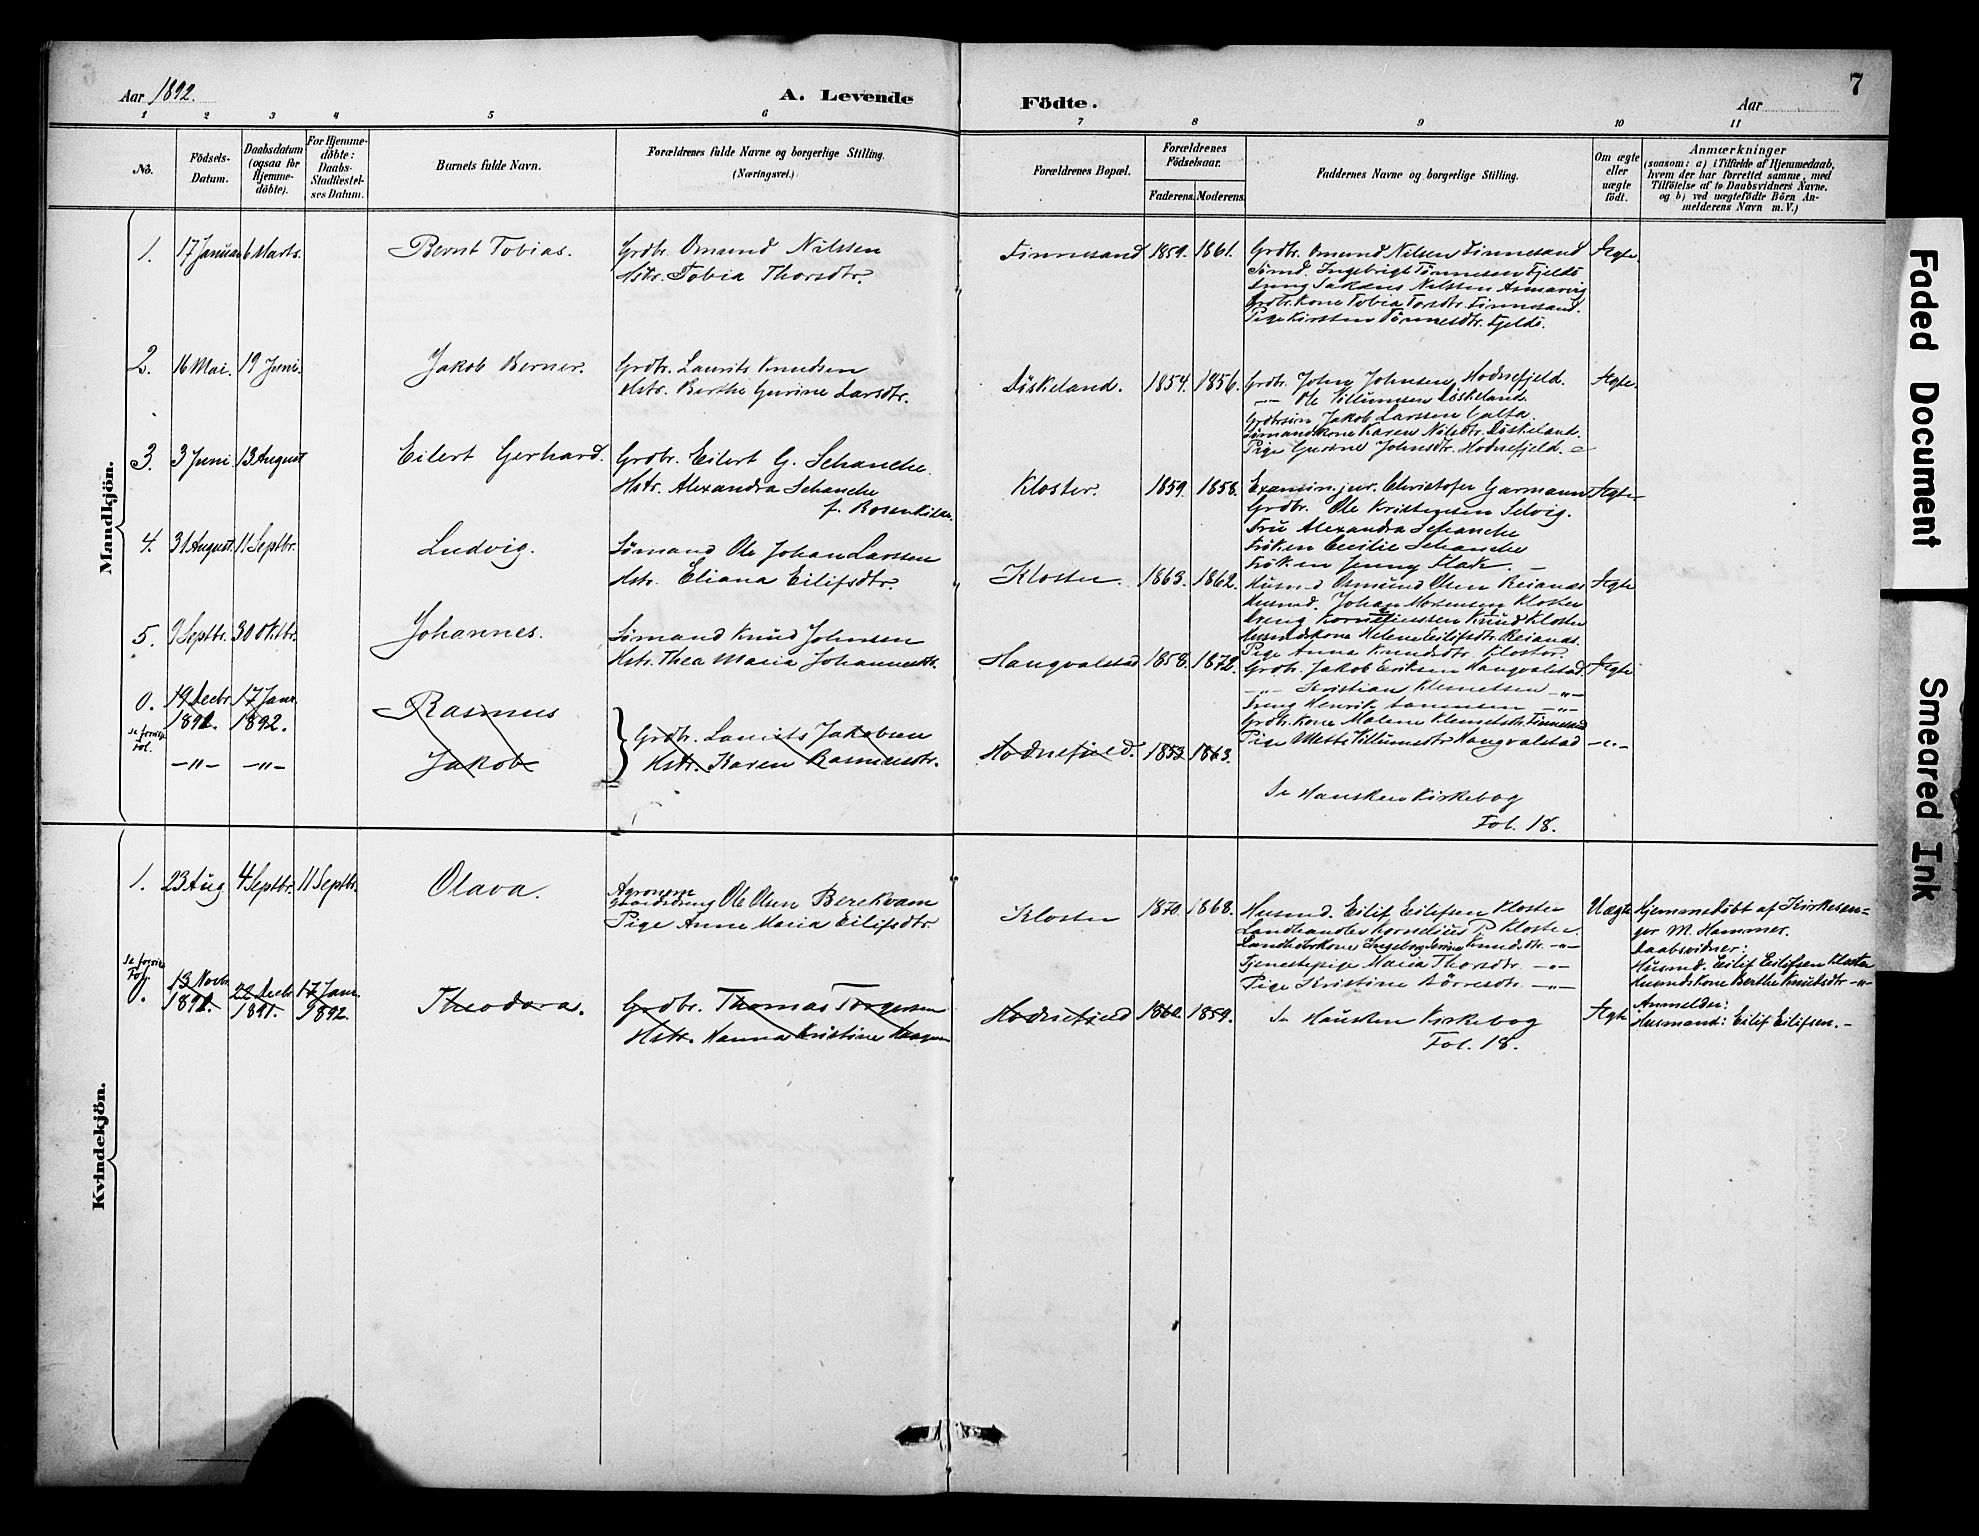 Aar 1892.
A. Levende
Födte.
Aar
7
1
2
3
4
5
6
7
8
9
10
11
No.
Födsels-
Datum.
Daabsdatum
(ogsaa for
Hjemme-
döbte).
For Hjemme-
döbte:
Daabs-
Stadfæstel-
ses Datum.
Barnets fulde Navn.
Forældrenes fulde Navne og borgerlige Stilling.
(Næringsvei.)
Forældrenes Bopæl.
Forældrenes
Födselsaar.
Faderens.
Moderens.
Faddernes Navne og borgerlige Stilling.
Om ægte
eller
uægte
födt.
Anmærkninger
(saasom: a) i Tilfælde af Hjemmedaab,
hvem der har forrettet samme, med
Tilföielse af to Daabsvidners Navne.
og b) ved uægtefödte Börn An-
melderens Navn m. V.)
Mandkjön.
1. 17 Januar 6 Marts. Bernt Tobias.
Grdbr. Omund Nilssen
Hstr. Tobia Thorsdtr.
Finnesand 1859. 1861.
Grdbr. Omund Nilsen Finnesand
Sömd. Ingebrigt Tönnesen Fjeldö
Nilssen
Grdbr. kone Tobia Torsdtr. Finnesand.
Pige Kirsten Tönnesdtr. Fjeldö.
Ægte.
2. 16 Mai. 19 Juni. Jakob Berner.
Grdbr. Laurits Knudsen
Hstr. Berthe Gurine Larsdtr.
Döskeland. 1854. 1856.
Grdbr. John Johnsen Hodnefjeld.
—"— Ole Villumsen Döskeland
Grdbrsön Jakob Larssen
Sömandskone Karen Nilsdtr. Döskeland.
Pige Gurine Johnsdtr. Hodnefjeld.
Ægte.
3. 3 Juni 13 August Eilert Gerhard.
Grdbr. Eilert G. Schanche.
Hstr. Alexandra Schanche
f. Rosenkilde.
Kloster. 1859. 1858.
Examin. jur. Christofer Garmann
Grdbr. Ole Kristensen Selvig.
Fru Alexandra Schanche
Fröken Cecilie Schanche
Fröken Jenny
Ægte
4. 31 August. 11 Septbr. Ludvig.
Sömand Ole Johan Larssen
Hstr. Eliana Eilifsdtr.
Kloster 1863. 1862.
Husmd Osmund Olsen Reianes
Husmd. Johan Mortensen Kloster
Dreng Korneliussen Knud Kloster
Husmdskone Helene Eilifsdtr. Reianes.
Pige Anna Knudsdtr. Kloster.
Ægte
5. 9 Septbr. 30 Oktbr. Johannes.
Sömand Knud Johnsen
Hstr. Thea Maria Johannesdtr.
Haugvalstad 1858. 1872.
Grdbr. Jakob Eriksen Haugvalstad.
—"— Kristian Klemetsen —"—
Dreng Henrik —"—
Grdbr. kone Malene Klemetsdtr. Finnesand
Pige Mette Villumsdtr Haugvalstad
Ægte
0. 19 Decbr 1891. 17 Janr. 1892. Rasmus
Se forrige
Fol.
—"— —"— Jakob
Grdbr. Laurits Jakobsen
Hstr. Karen Rasmusdtr.
Hodnefjeld. 1853 1863.
—"—
Se Hausken Kirkebog
Fol. 18.
Kvindekjön.
1. 23 Aug 4 Septbr. 11 Septbr. Olava.
Agronom
Ole Olsen Berekvam
Pige Anne Maria Eilifsdtr.
Kloster 1870. 1868.
Husmd. Eilif Eilifsen Kloster
Landhandler Kornelius P Kloster.
Landhdlrkone Ingeborg Serine Knudsdtr. —"—
Tjenestepige Maria Thorsdtr —"—
Pige Kristine Börresdtr —"—
Uægte
Hjemmedöbt af Kirkesan-
ger M. Hammer.
Daabsvidner:
Husmd. Eilif Eilifsen Kloster
Husmdskone Berthe Knutsdtr —"—
Anmelder:
Husmand: Eilif Eilifsen.—
Se forrige
Fol.
0. 13 Novbr 1891. 22 Decbr 1891. 17 Janr. 1892. Theodora.
Grdbr. Thomas Torgersen
Hstr. Hanna Kristine
Hodnefjeld 1860. 1859.
Se Hausken Kirkebog
Fol. 18.
Ægte
Faded Document
Smeared Ink